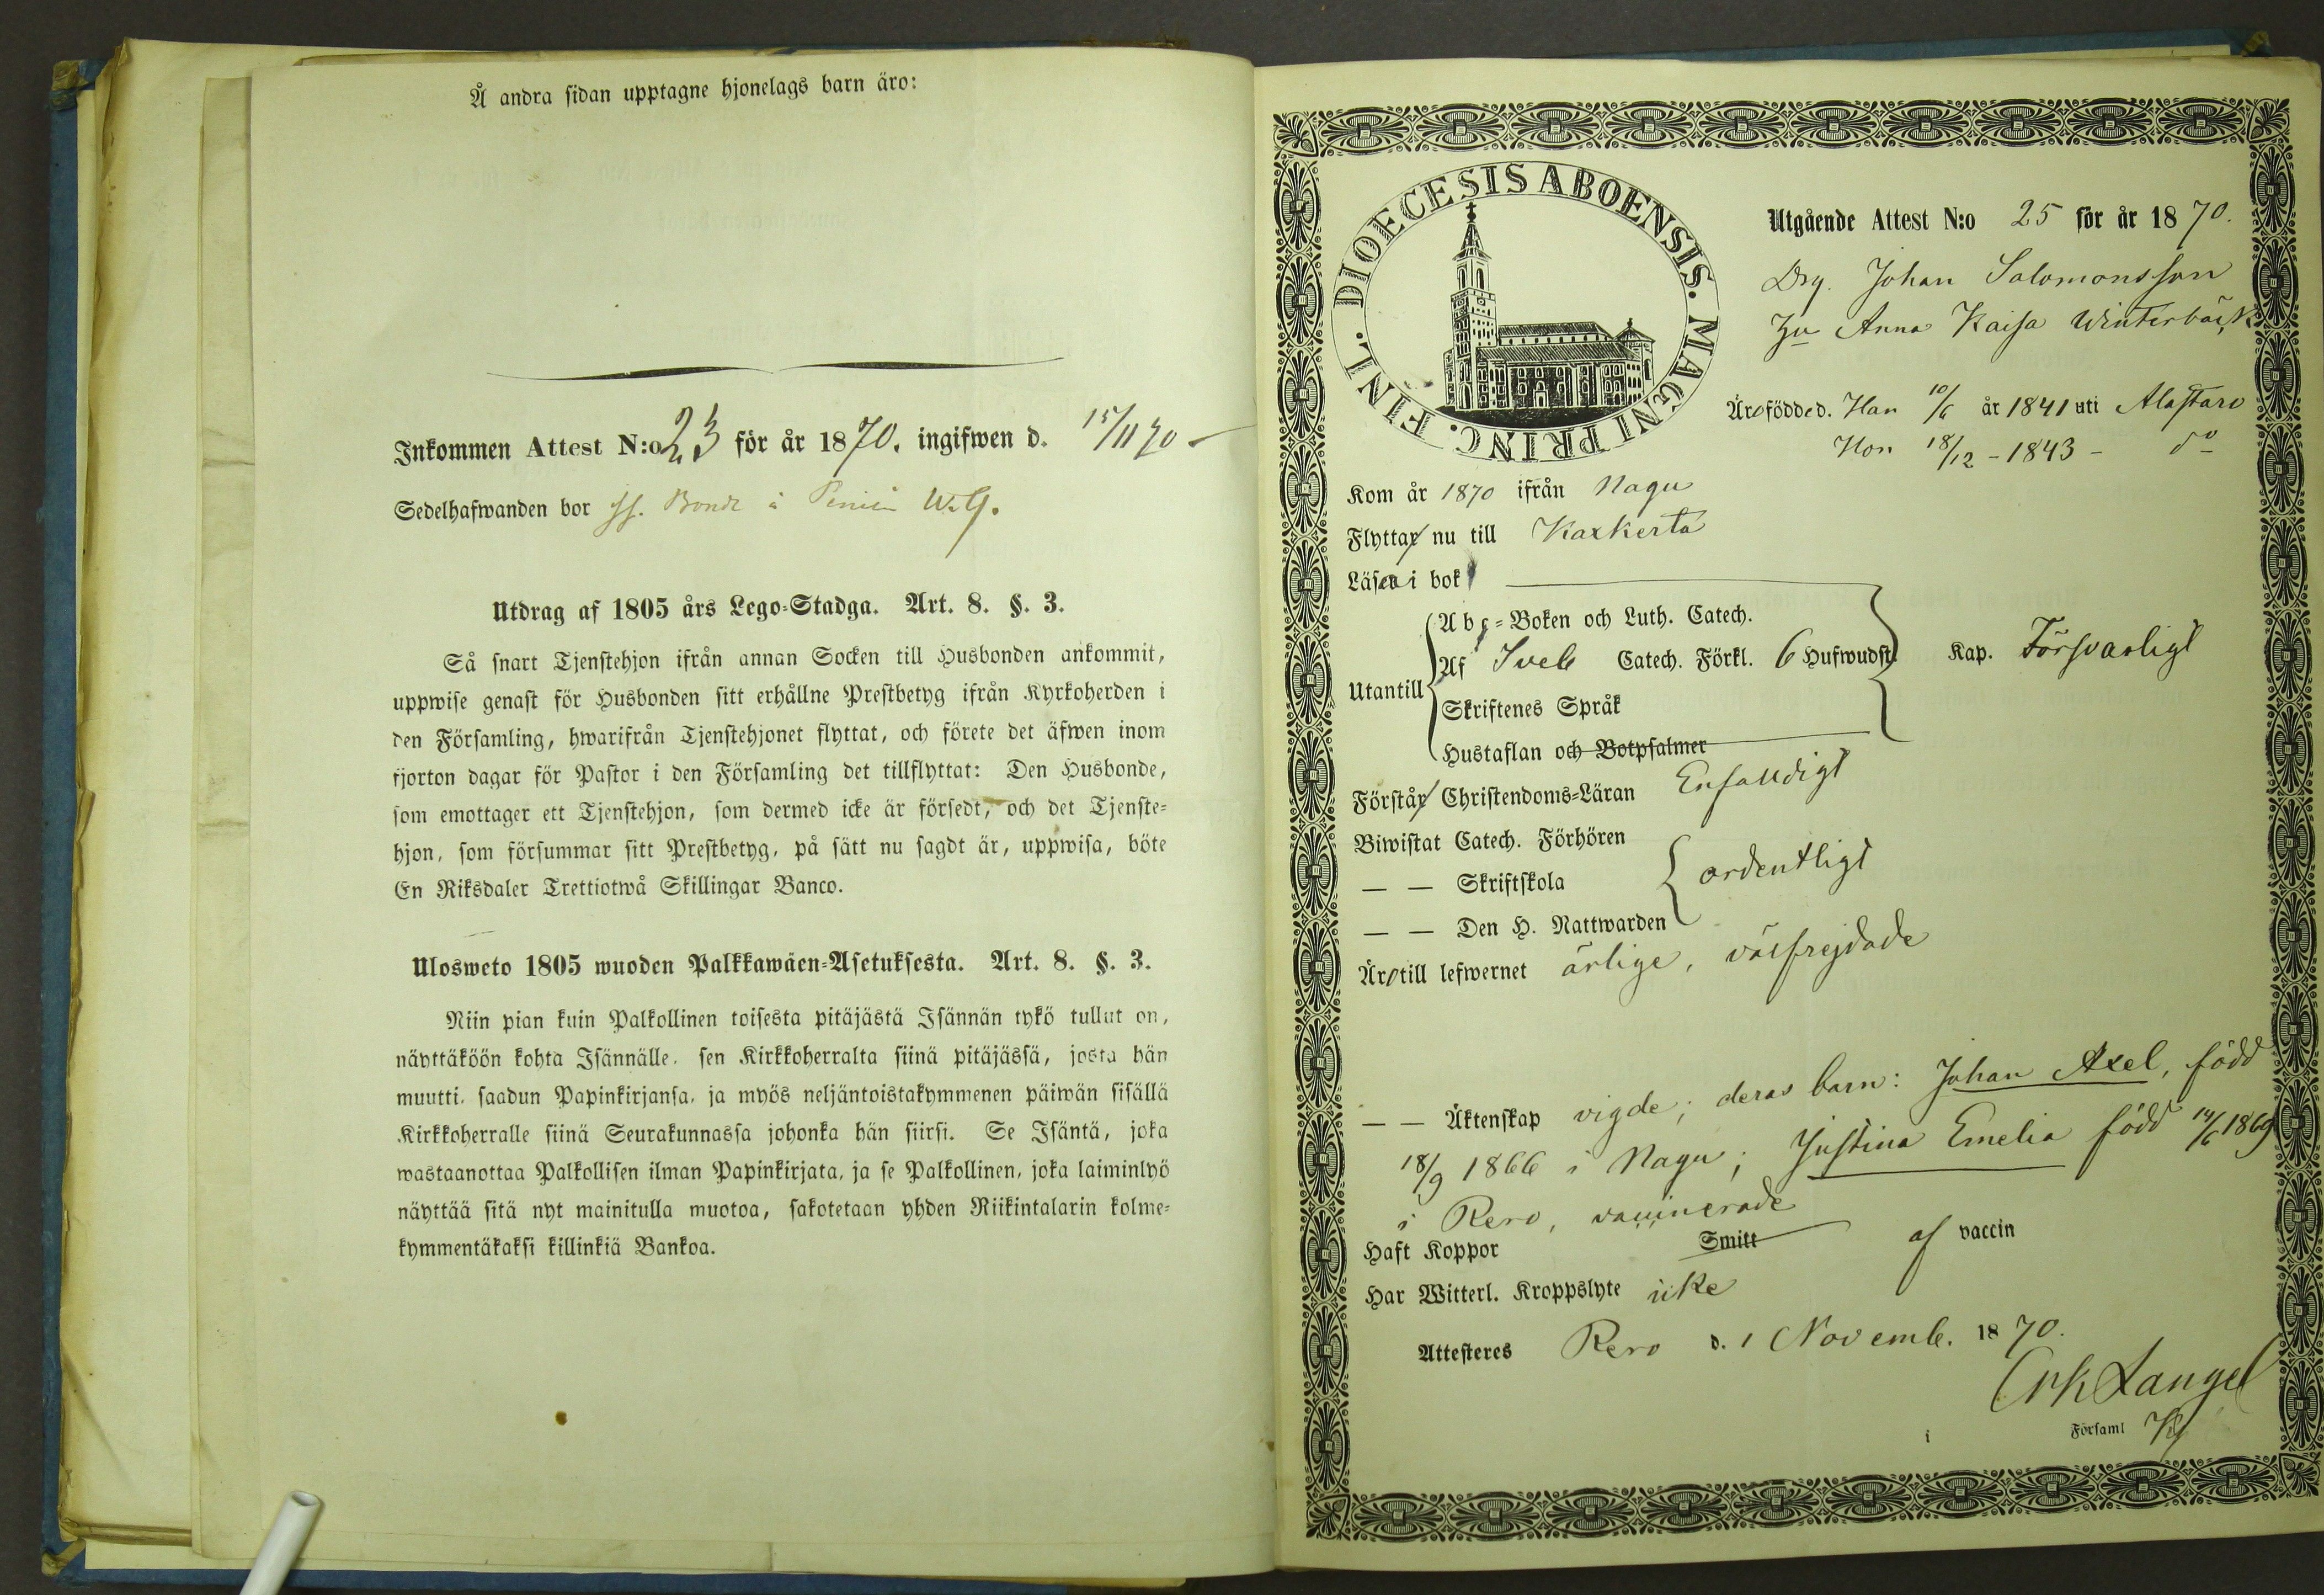 Å andra sidan upptagne hjonelags barn äro:
Inkommen Attest N:o 23 för år 1870. ingifwen d. 15/11 70
Sedelhafwanden bor Bonde å W.G.
Utdrag af 1805 års Lego-Stadga. Art. 8. §. 3.
Så snart Tjenstehjon ifrån annan Socken till Husbonden ankommit,
uppwise genast för Husbonden sitt erhållne Prestbetyg ifrån Kyrkoherden i
den Församling, hwarifrån Tjenstehjonet flyttat, och förete det äfwen inom
fjorton dagar för Pastor i den Församling det tillflyttat: Den Husbonde,
som emottager ett Tjenstehjon, som dermed icke är försedt, och det Tjenste-
hjon, som försummar sitt Prestbetyg, på sätt nu sagdt är, uppwisa, böte
En Riksdaler Trettiotwå Skillingar Banco.
Ulosweto 1805 wuoden Palkkawäen-Asetuksesta. Art. 8. §. 3.
Niin pian kuin Palkollinen toisesta pitäjästä Isännän tykö tullut on,
näyttäköön kohta Isännälle, sen Kirkkoherralta siinä pitäjässä, josta hän
muutti, saadun Papinkirjansa, ja myös neljäntoistakymmenen päiwän sisällä
Kirkkoherralle siinä Seurakunnassa johonka hän siirsi. Se Isäntä, joka
wastaanottaa Palkollisen ilman Papinkirjata, ja se Palkollinen, joka laiminlyö
näyttää sitä nyt mainitulla muotoa, sakotetaan yhden Riikintalarin kolme-
kymmentäkaksi killinkiä Bankoa.
FINL. DIOECESIS ABOENSIS. MAGNI PRINC.
Utgående Attest N:o 25 för år 1870.
Drg. Johan Salomonsson
Hu Anna Kaisa Winterbäck
Äro födde d. Han 10/6 år 1841 uti Alastaro
Hon 18/12 - 1843 - do
Kom år 1870 ifrån Nagu
Flyttar nu till Kaxkerta
Läsa i bok
Abc-Boken och Luth. Catech.
Utantill Af Sveb Catech. Förkl. 6 Hufwudst. Kap. Försvarligt
Skriftenes Språk
Hustaflan och Botpsalmer
Förstår Christendoms-Läran Enfalldigt
Biwistat Catech. Förhören
— — Skriftskola ordentligt
— — Den H. Nattwarden
Äro till lefwernet ärlige, välfrejdade
— — Äktenskap vigde; deras barn: Johan Axel, född
18/9 1866 i Nagu; Justina Emelia född 14/6 1869
i Rero, vaccinerade
Haft Koppor Smitt af vaccin
Har Witterl. Kroppslyte icke
Attesteres Rero d. 1 Novemb. 1870.
Langel
i Församl Kh